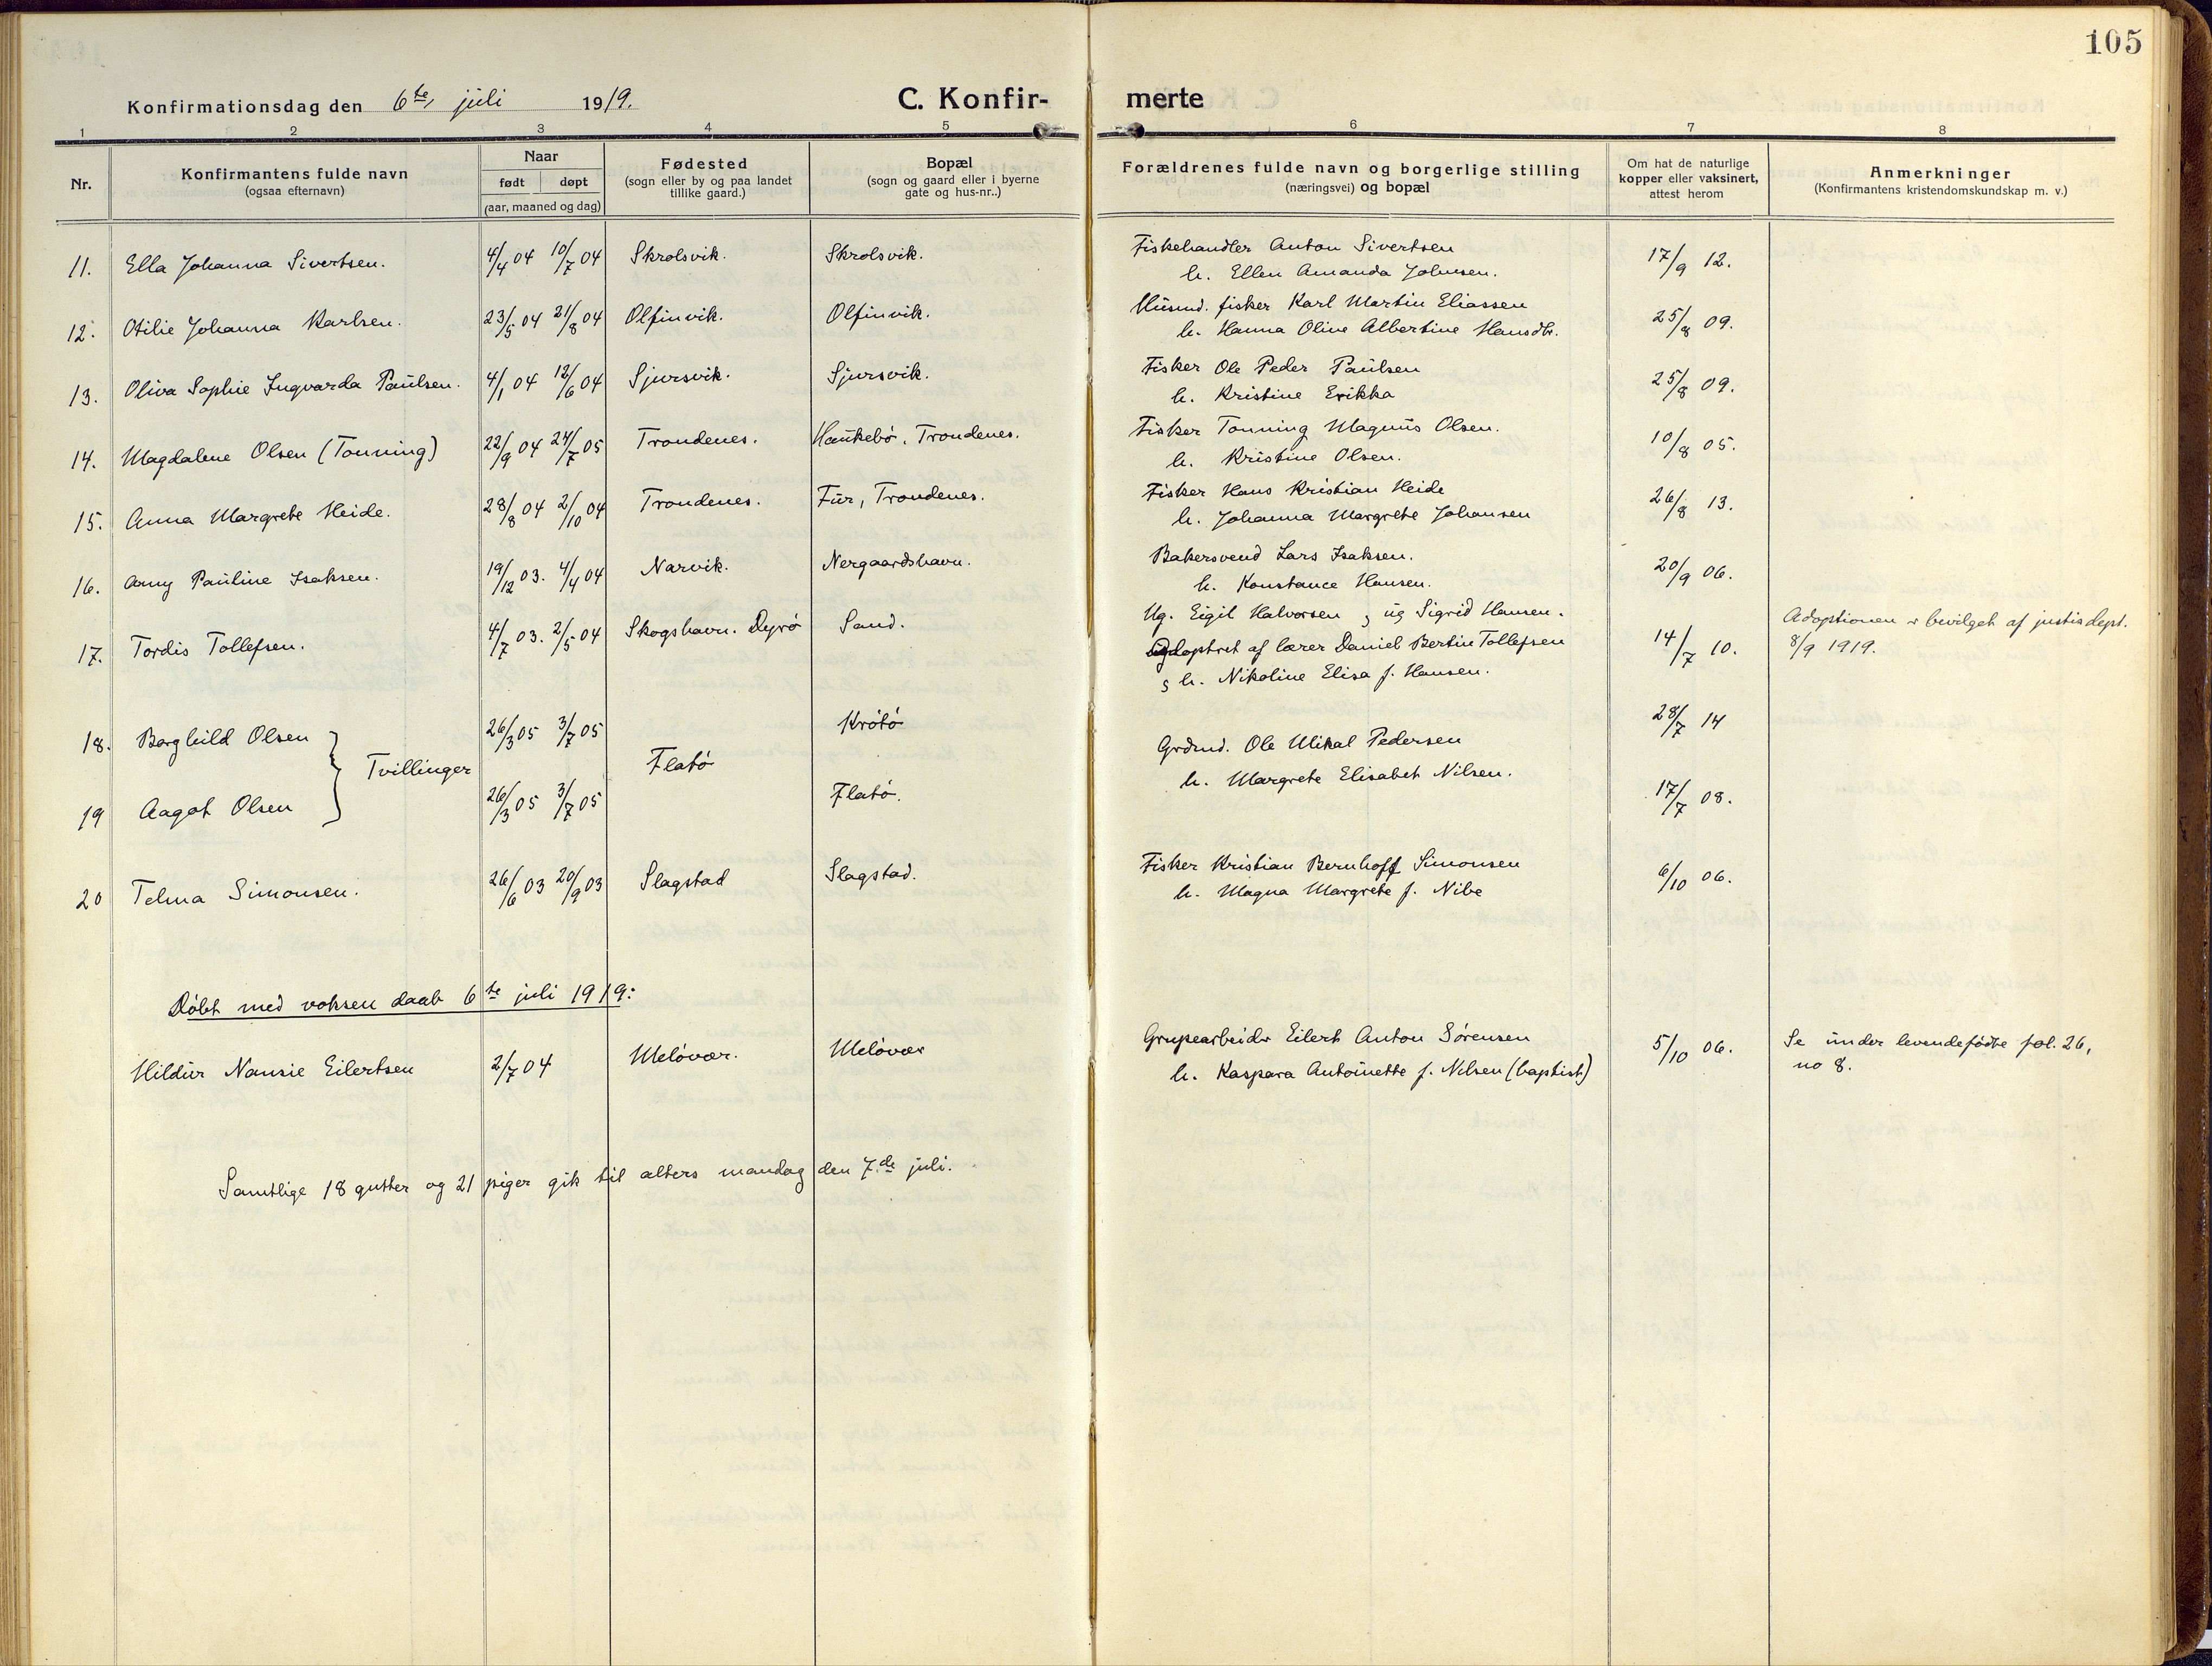 105
Konfirmationsdag den 6te juli 1919.
C. Konfir- merte
1 2 3 4 5 6 7 8
Nr.
Konfirmantens fulde navn
(ogsaa efternavn)
Naar
født døpt
(aar, maaned og dag)
Fødested
(sogn eller by og paa landet
tillike gaard.)
Bopæl
(sogn og gaard eller i byerne
gate og hus-nr..)
Forældrenes fulde navn og borgerlige stilling
(næringsvei) og bopæl
Om hat de naturlige
kopper eller vaksinert,
attest herom
Anmerkninger
(Konfirmantens kristendomskundskap m. v.)
11. Ella Johanna Sivertsen. 4/4 04 10/7 04 Skrolsvik. Skrolsvik. Fiskehandler Anton Sivertsen 17/9 12.
h. Ellen Amanda Johnsen.
12. Otilie Johanna Karlsen. 23/5 04 21/8 04 Olfinvik. Olfinvik. Husmd. fisker Karl Martin Eliassen 25/8 09.
h. Hanna Oline Albertine Hansdtr.
13. Oliva Sophie Ingvarda Paulsen. 4/1 04 12/6 04 Sjursvik. Sjursvik. Fisker Ole Peder Paulsen 25/8 09.
h. Kristine Erikka
14. Magdalene Olsen (Tonning) 22/9 04 24/7 05 Trondenes. Haukebø, Trondenes. Fisker Tonning Magnus Olsen. 10/8 05.
h. Kristine Olsen.
15. Anna Margrete Heide. 28/8 04 2/10 04 Trondenes. Fur, Trondenes. Fisker Hans Kristian Heide 26/8 13.
h. Johanna Margrete Johansen
16. Amy Pauline Isaksen. 19/12 03. 4/4 04 Narvik. Nergaardshavn. Bakersvend Lars Isaksen. 20/9 06.
h. Konstance Hansen.
17. Tordis Tollefsen. 4/7 03. 2/5 04 Skogshavn. Dyrø Sand. Ug. Eigil Halvorsen og ug Sigrid Hansen. 14/7 10. Adoptionen er bevilget af justisdept.
Adoptret af lærer Daniel Bertin Tollefsen 8/9 1919.
og h. Nikoline Elisa f. Hansen.
18. Borghild Olsen 26/3 05 3/7 05 Krøtø 28/7 14
Tvillinger Flatø Grdmd. Ole Mikal Pedersen
h. Margrete Elisabet Nilsen.
19 Aagot Olsen 26/3 05 3/7 05 Flatø. 17/7 08.
20 Telma Simonsen. 26/6 03 20/9 03 Slagstad Slagstad. Fisker Kristian Bernhoff Simonsen 6/10 06.
h. Magna Margrete f. Nibe
Døbt med voksen daab 6te juli 1919:
Hildur Nansie Eilertsen 2/7 04 Meløvær. Meløvær Grupearbeider Eilert Anton Sørensen 5/10 06. Se under levendefødte fol. 26,
h. Kaspara Antoinette f. Nilsen (baptist) no 8.
Samtlige 18 gutter og 21 piger gik til alters mandag den 7.de juli.